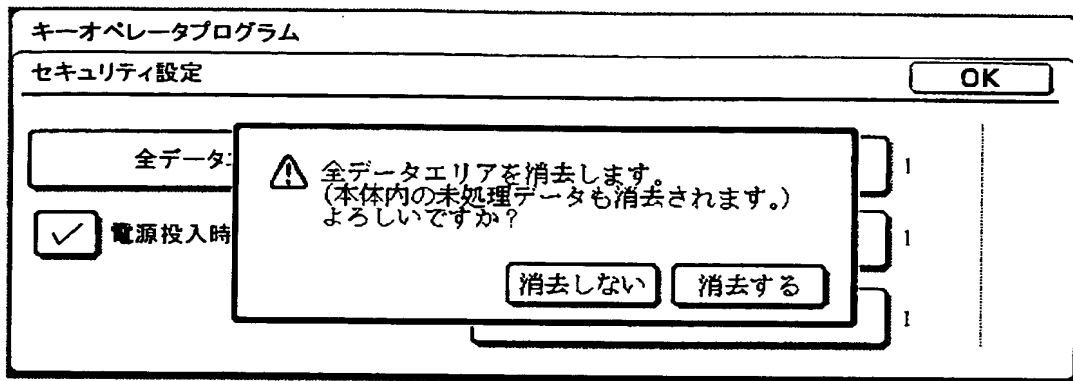 キーオペレータプログラム
セキュリティ設定
OK
全データエ
1
全データエリアを消去します。
(本体内の未処理データも消去されます。)
よろしいですか?
電源投入時
1
消去しない
消去する
1